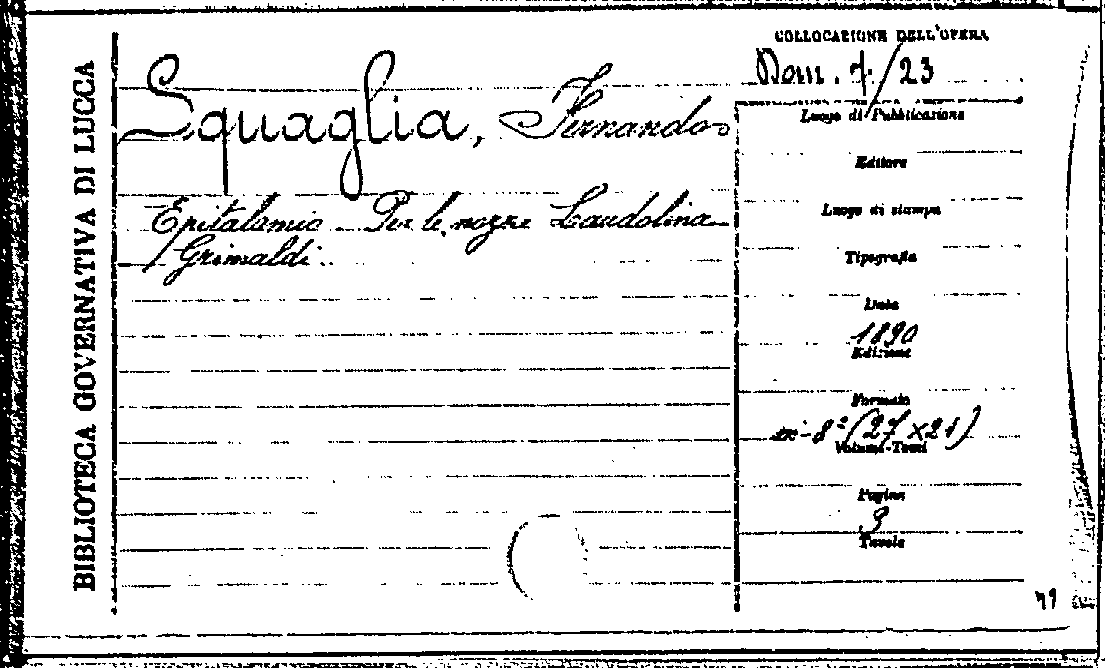 BIBLIOTECA GOVERNATIVA DI LUCCA
Squaglia, Fernando
Epitalamio - Per le nozze Laudolina
Grimaldi.
COLLOCAZIONE DELL'OPERA
Dom. 7/23
Luogo di Pubblicazione
Editore
Luogo di stampa
Tipografia
Data
1890
Edizione
Formato
in-8º (27×21)
Volumi-Tomi
Pagine
9
Tavole